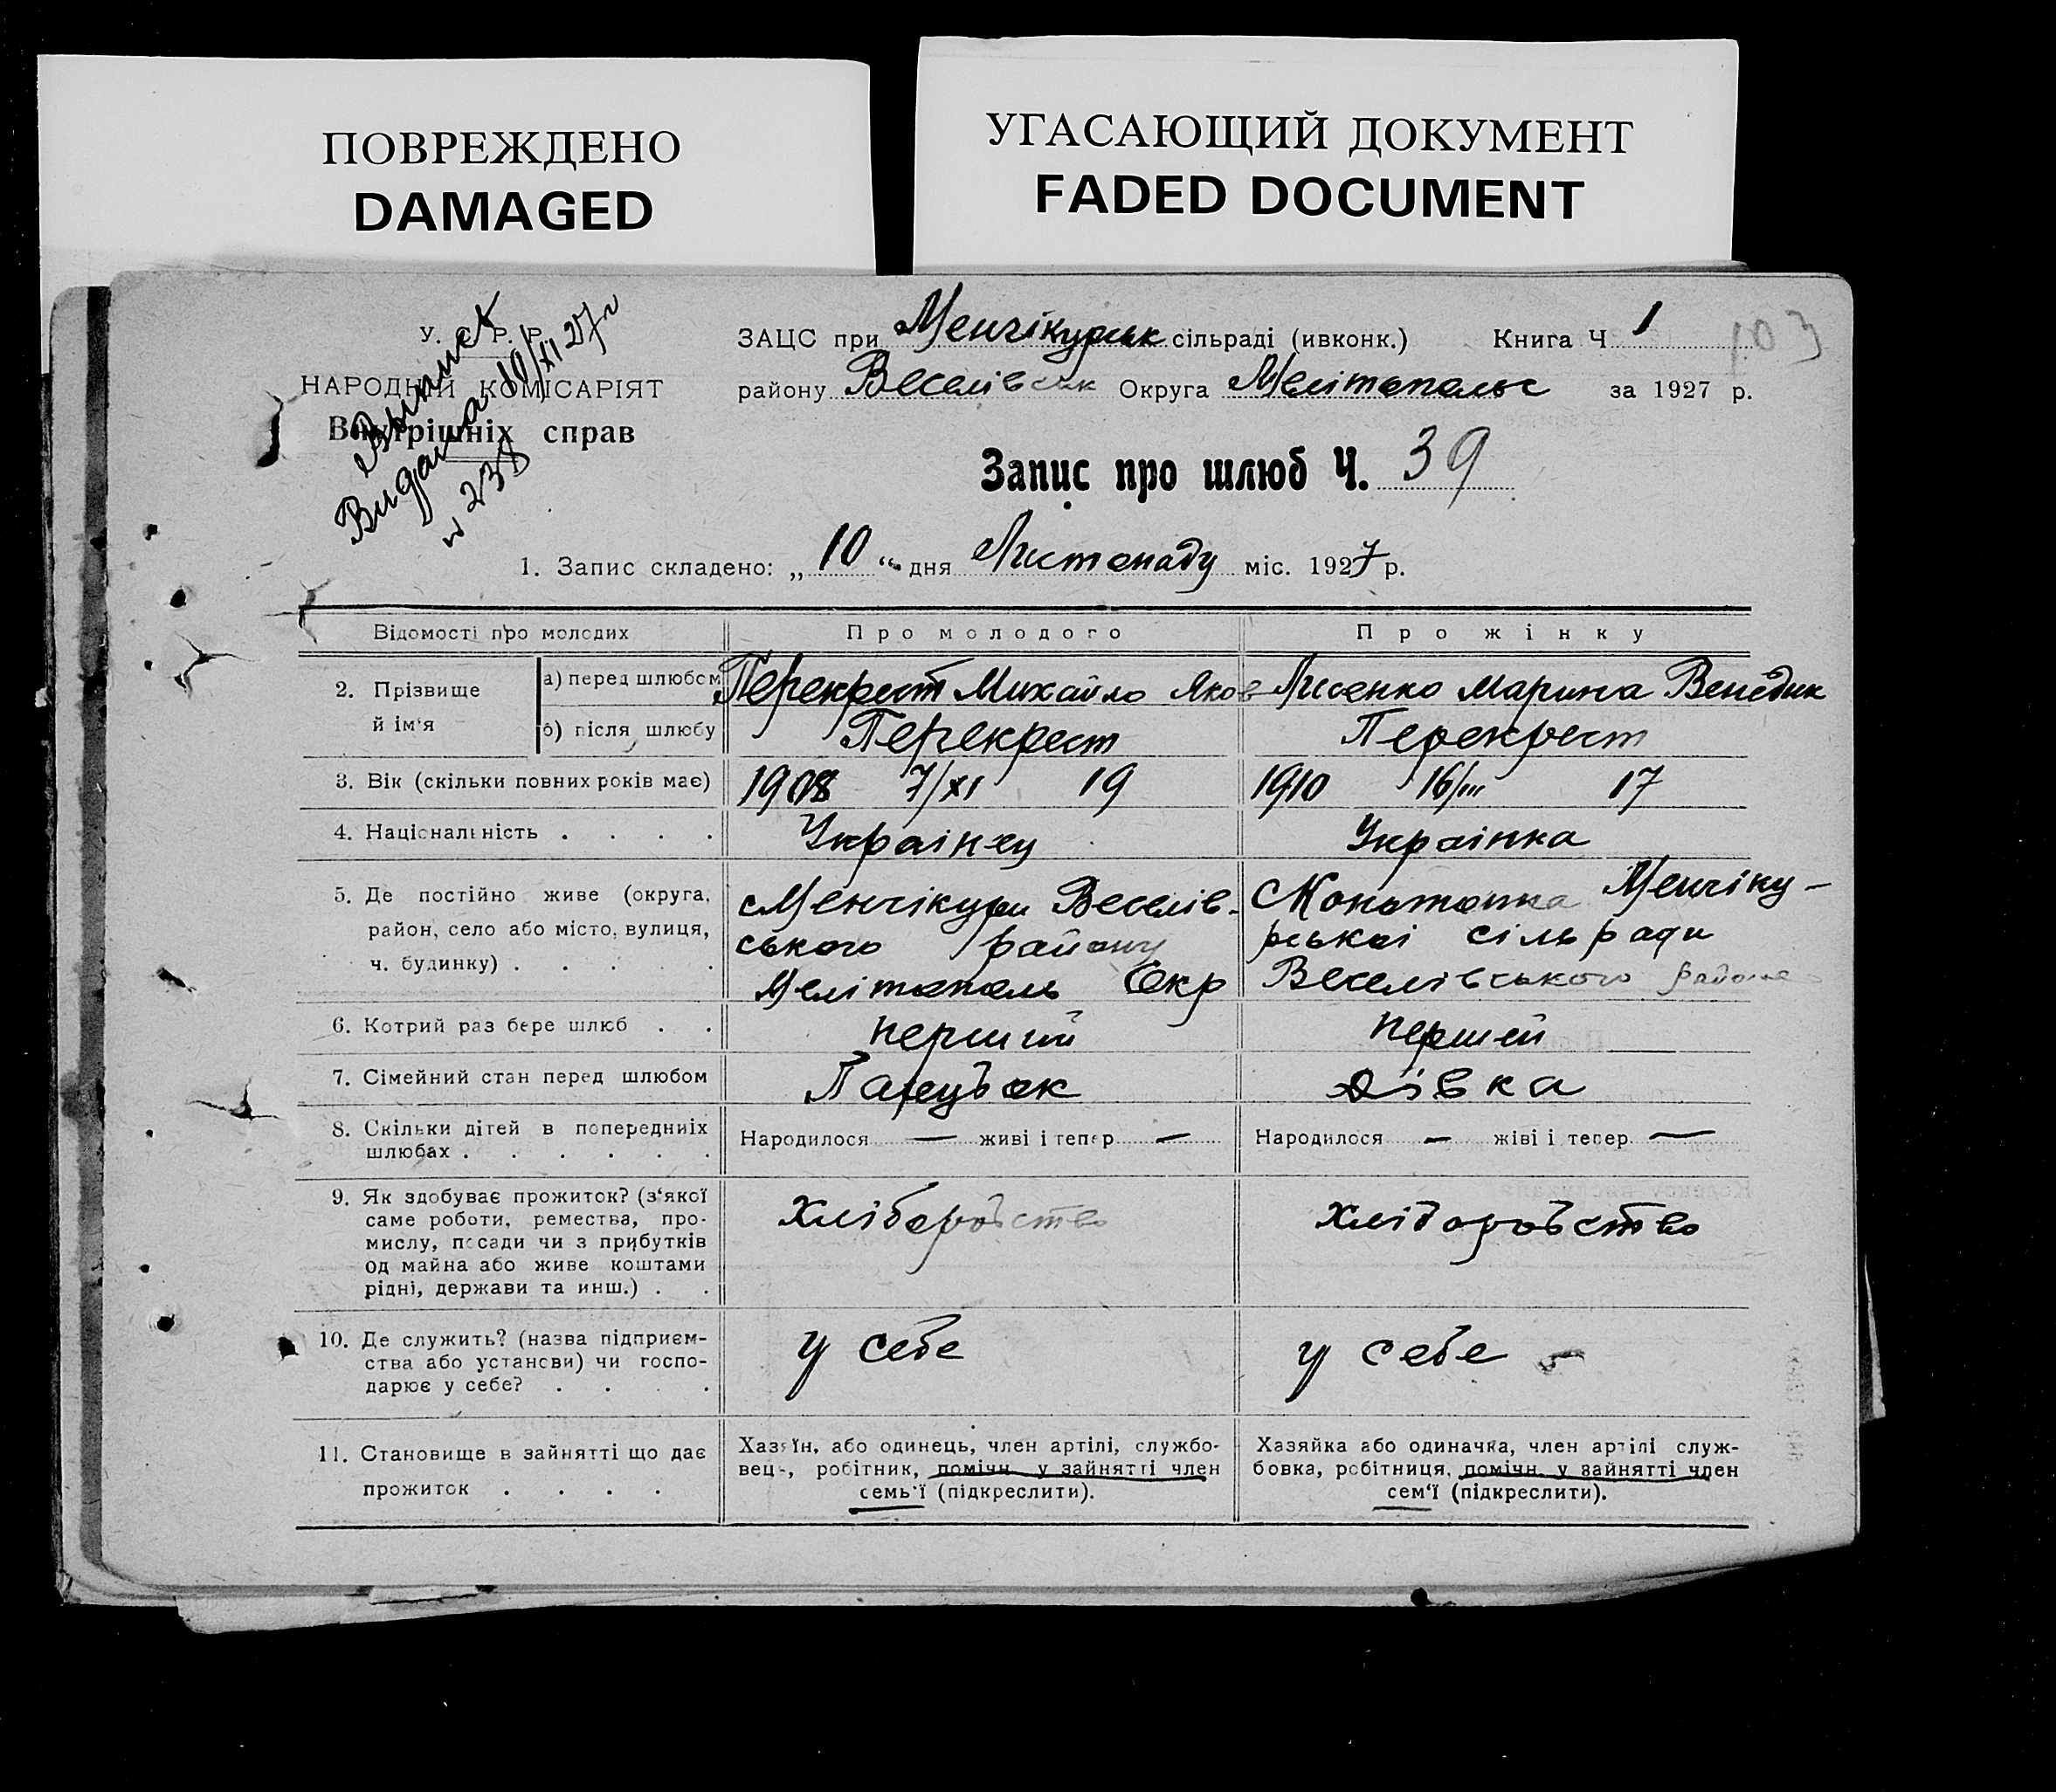 ПОВРЕЖДЕНО
DAMAGED
УГАСАЮЩИЙ ДОКУМЕНТ
FADED DOCUMENT
У. С. Р. Р.
НАРОДНИЙ КОМІСАРІЯТ
Внутрішніх справ
Выписк
Видана 10/XI 27 г
№ 238
ЗАЦС при Менчікурськ сільраді (ивконк.) Книга Ч 1
103
району Веселівськ Округа Мелітопольс за 1927 р.
Запис про шлюб Ч. 39
1. Запис складено: „ 10 “ дня Листопаду міс. 1927 р.
Відомості про молодих Про молодого Про жінку
2. Прізвище й ім'я а) перед шлюбом Перекрест Михайло Яков Лисенко Марина Венедик
б) після шлюбу Перекрест Перекрест
3. Вік (скільки повних років має) 1908 7/XI 19 1910 16/III 17
4. Національність . . . . Українец Українка
5. Де постійно живе (округа, Менчікури Веселів- Конотопка Менчіку-
район, село або місто, вулиця, ського району рської сільради
ч. будинку) . . . . . Мелітополь Окр Веселівського района
6. Котрий раз бере шлюб . . перший першей
7. Сімейний стан перед шлюбом Парубок дівка
8. Скільки дітей в попередніх Народилося — живі і тепер — Народилося — жіві і тепер —
шлюбах . . . . . .
9. Як здобуває прожиток? (з'якої Хліборобство Хліборобство
саме роботи, ремества, про-
мислу, посади чи з прибутків
од майна або живе коштами
рідні, держави та инш.) . .
10. Де служить? (назва підприєм- у себе у себе –
ства або установи) чи госпо-
дарює у себе? . . . .
11. Становище в зайнятті що дає Хазяїн, або одинець, член артілі, службо- Хазяйка або одиначка, член артілі служ-
прожиток . . . . вець, робітник, помічн. у зайнятті член бовка, робітниця, помічн. у зайнятті член
семь'ї (підкреслити). сем'ї (підкреслити).